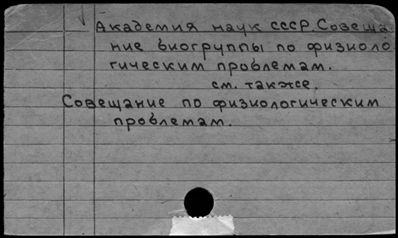 Академия наук СССР. Совеща
ние биогруппы по физиоло
гическим проблемам.
см. также,
Совещание по физиологическим
проблемам.